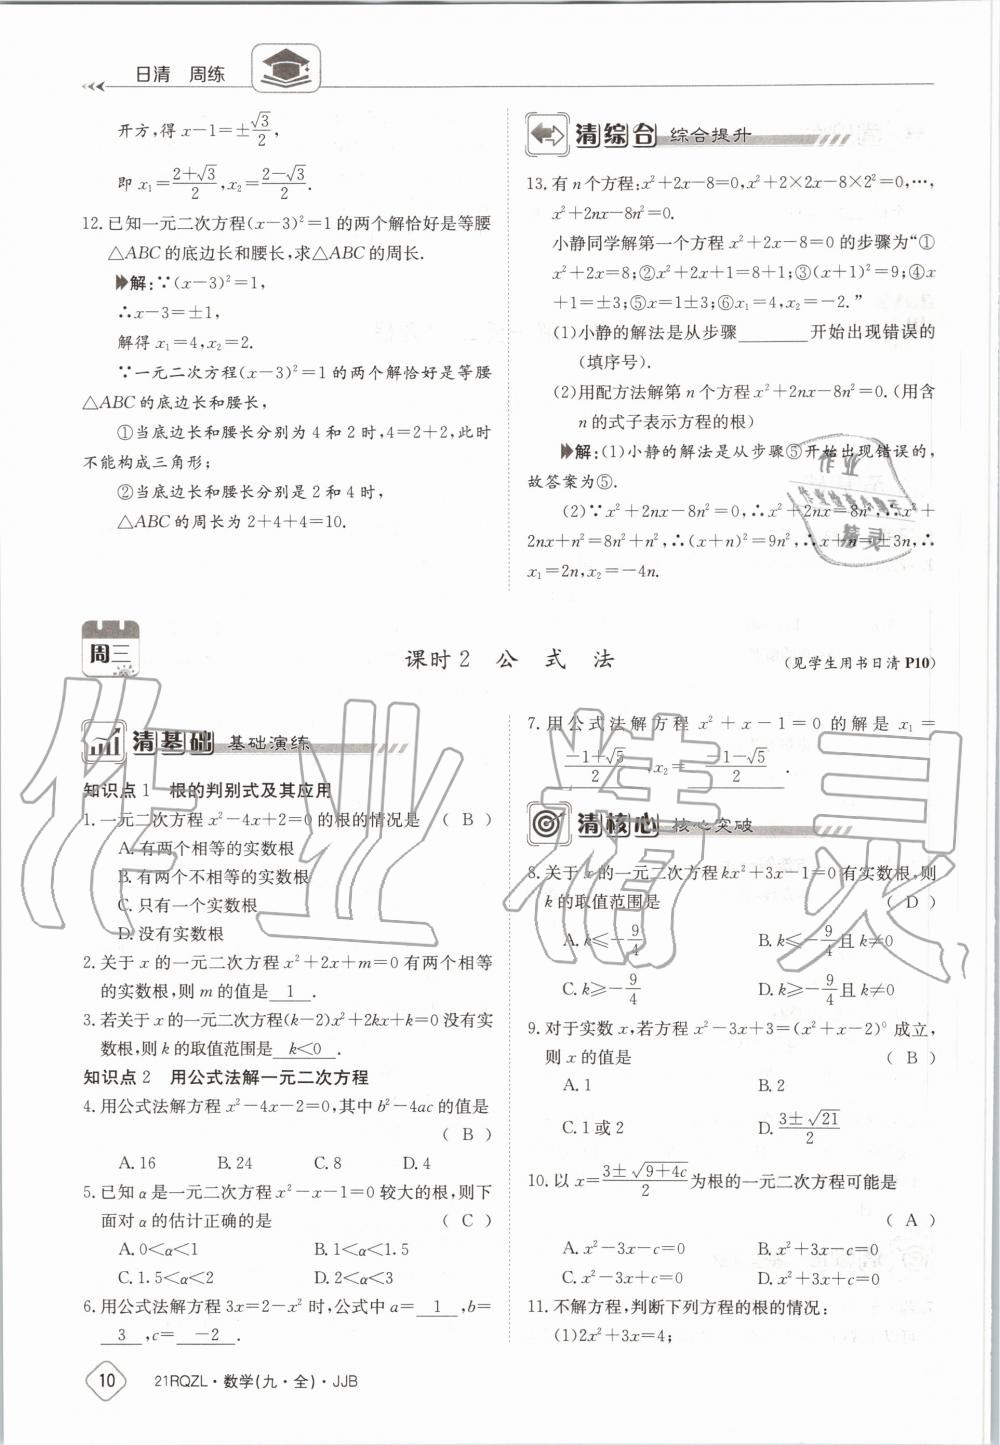 日清 周练
开方,得 x-1=±√3/2,
即 x₁=(2+√3)/2,x₂=(2-√3)/2.
12.已知一元二次方程(x-3)²=1的两个解恰好是等腰
△ABC的底边长和腰长,求△ABC的周长.
解:∵(x-3)²=1,
∴x-3=±1,
解得 x₁=4,x₂=2.
∵一元二次方程(x-3)²=1的两个解恰好是等腰
△ABC的底边长和腰长,
①当底边长和腰长分别为4和2时,4=2+2,此时
不能构成三角形;
②当底边长和腰长分别是2和4时,
△ABC的周长为2+4+4=10.
清综合 综合提升
13.有n个方程:x²+2x-8=0,x²+2×2x-8×2²=0,…,
x²+2nx-8n²=0.
小静同学解第一个方程x²+2x-8=0的步骤为“①
x²+2x=8;②x²+2x+1=8+1;③(x+1)²=9;④x
+1=±3;⑤x=1±3;⑥x₁=4,x₂=-2.”
(1)小静的解法是从步骤________开始出现错误的
(填序号).
(2)用配方法解第n个方程x²+2nx-8n²=0.(用含
n的式子表示方程的根)
解:(1)小静的解法是从步骤⑤开始出现错误的,
故答案为⑤.
(2)∵x²+2nx-8n²=0,∴x²+2nx=8n²,∴x²+
2nx+n²=8n²+n²,∴(x+n)²=9n²,∴x+n=±3n,∴
x₁=2n,x₂=-4n.
周三
课时2 公式法
(见学生用书日清P10)
清基础 基础演练
知识点1 根的判别式及其应用
1.一元二次方程x²-4x+2=0的根的情况是 ( B )
A.有两个相等的实数根
B.有两个不相等的实数根
C.只有一个实数根
D.没有实数根
2.关于x的一元二次方程x²+2x+m=0有两个相等
的实数根,则m的值是 1 .
3.若关于x的一元二次方程(k-2)x²+2kx+k=0没有实
数根,则k的取值范围是 k<0 .
知识点2 用公式法解一元二次方程
4.用公式法解方程x²-4x-2=0,其中b²-4ac的值是
( B )
A.16 B.24 C.8 D.4
5.已知α是一元二次方程x²-x-1=0较大的根,则下
面对α的估计正确的是 ( C )
A.0<α<1 B.1<α<1.5
C.1.5<α<2 D.2<α<3
6.用公式法解方程3x=2-x²时,公式中a= 1 ,b=
3 ,c= -2 .
7.用公式法解方程x²+x-1=0的解是x₁=
(-1+√5)/2 ,x₂= (-1-√5)/2 .
清核心 核心突破
8.关于x的一元二次方程kx²+3x-1=0有实数根,则
k的取值范围是 ( D )
A.k≤-9/4 B.k≤-9/4且k≠0
C.k≥-9/4 D.k≥-9/4且k≠0
9.对于实数x,若方程x²-3x+3=(x²+x-2)⁰成立,
则x的值是 ( B )
A.1 B.2
C.1或2 D.(3±√21)/2
10.以x=(3±√(9+4c))/2为根的一元二次方程可能是
( A )
A.x²-3x-c=0 B.x²+3x-c=0
C.x²-3x+c=0 D.x²+3x+c=0
11.不解方程,判断下列方程的根的情况:
(1)2x²+3x=4;
10 21RQZL·数学(九·全)·JJB
作业精灵